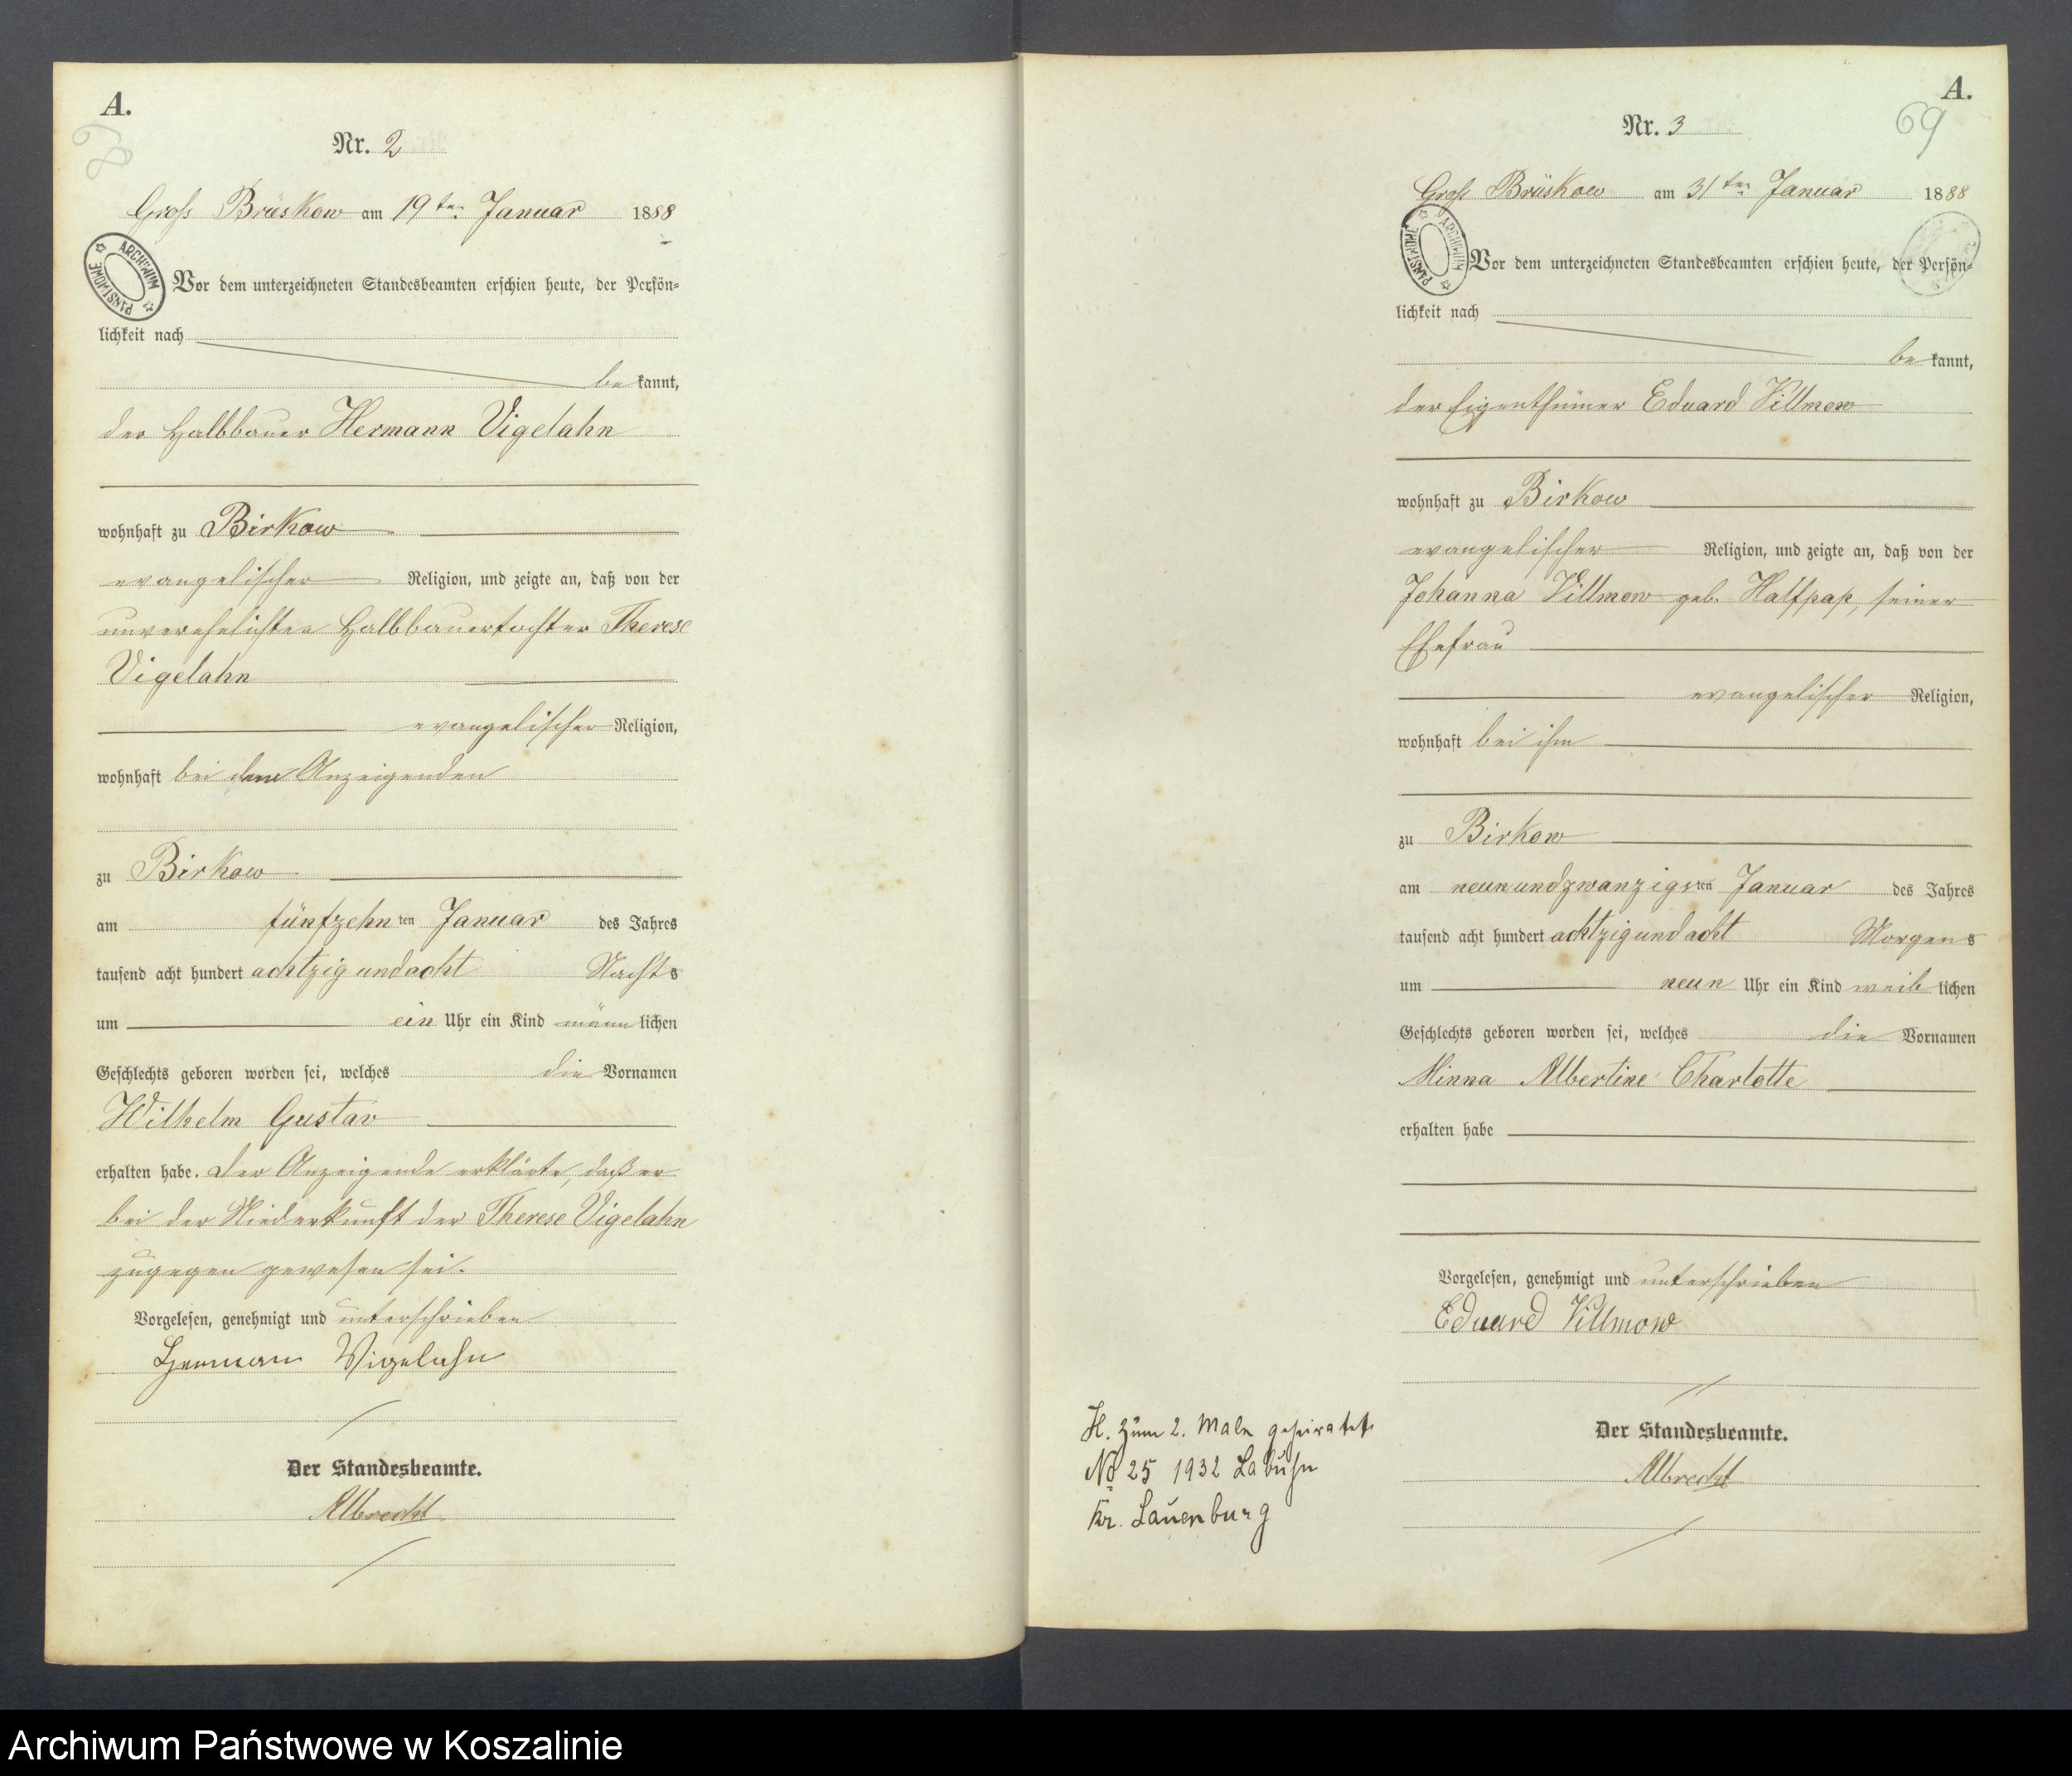 A.
68
Nr. 2
Gross Brüskow am 19ten Januar 1888
ARCHIWUM PAŃSTWOWE
Vor dem unterzeichneten Standesbeamten erschien heute, der Persön=
lichkeit nach
be kannt,
der Halbbauer Hermann Vigelahn
wohnhaft zu Birkow
evangelischer Religion, und zeigte an, daß von der
unverehelichten Halbbauertochter Therese
Vigelahn
evangelischer Religion,
wohnhaft bei dem Anzeigenden
zu Birkow
am fünfzehn ten Januar des Jahres
tausend acht hundert achtzig und acht Nachts
um ein Uhr ein Kind männ lichen
Geschlechts geboren worden sei, welches die Vornamen
Wilhelm Gustav
erhalten habe. Der Anzeigende erklärte, daß er
bei der Niederkunft der Therese Vigelahn
zugegen gewesen sei.
Vorgelesen, genehmigt und unterschrieben
Herman Vigelahn
Der Standesbeamte.
Albrecht
A.
69
Nr. 3
Gross Brüskow am 31ten Januar 1888
ARCHIWUM PAŃSTWOWE
Vor dem unterzeichneten Standesbeamten erschien heute, der Persön=
lichkeit nach
be kannt,
der Eigenthümer Eduard Villmow
wohnhaft zu Birkow
evangelischer Religion, und zeigte an, daß von der
Johanna Villmow geb. Halfpap, seiner
Ehefrau
evangelischer Religion,
wohnhaft bei ihm
zu Birkow
am neunundzwanzigsten Januar des Jahres
tausend acht hundert achtzig und acht Morgens
um neun Uhr ein Kind weib lichen
Geschlechts geboren worden sei, welches die Vornamen
Minna Albertine Charlotte
erhalten habe
Vorgelesen, genehmigt und unterschrieben
Eduard Villmow
Der Standesbeamte.
Albrecht
H. zum 2. Male geheiratet
No 25 1932 Labuhn
Kr. Lauenburg
Archiwum Państwowe w Koszalinie